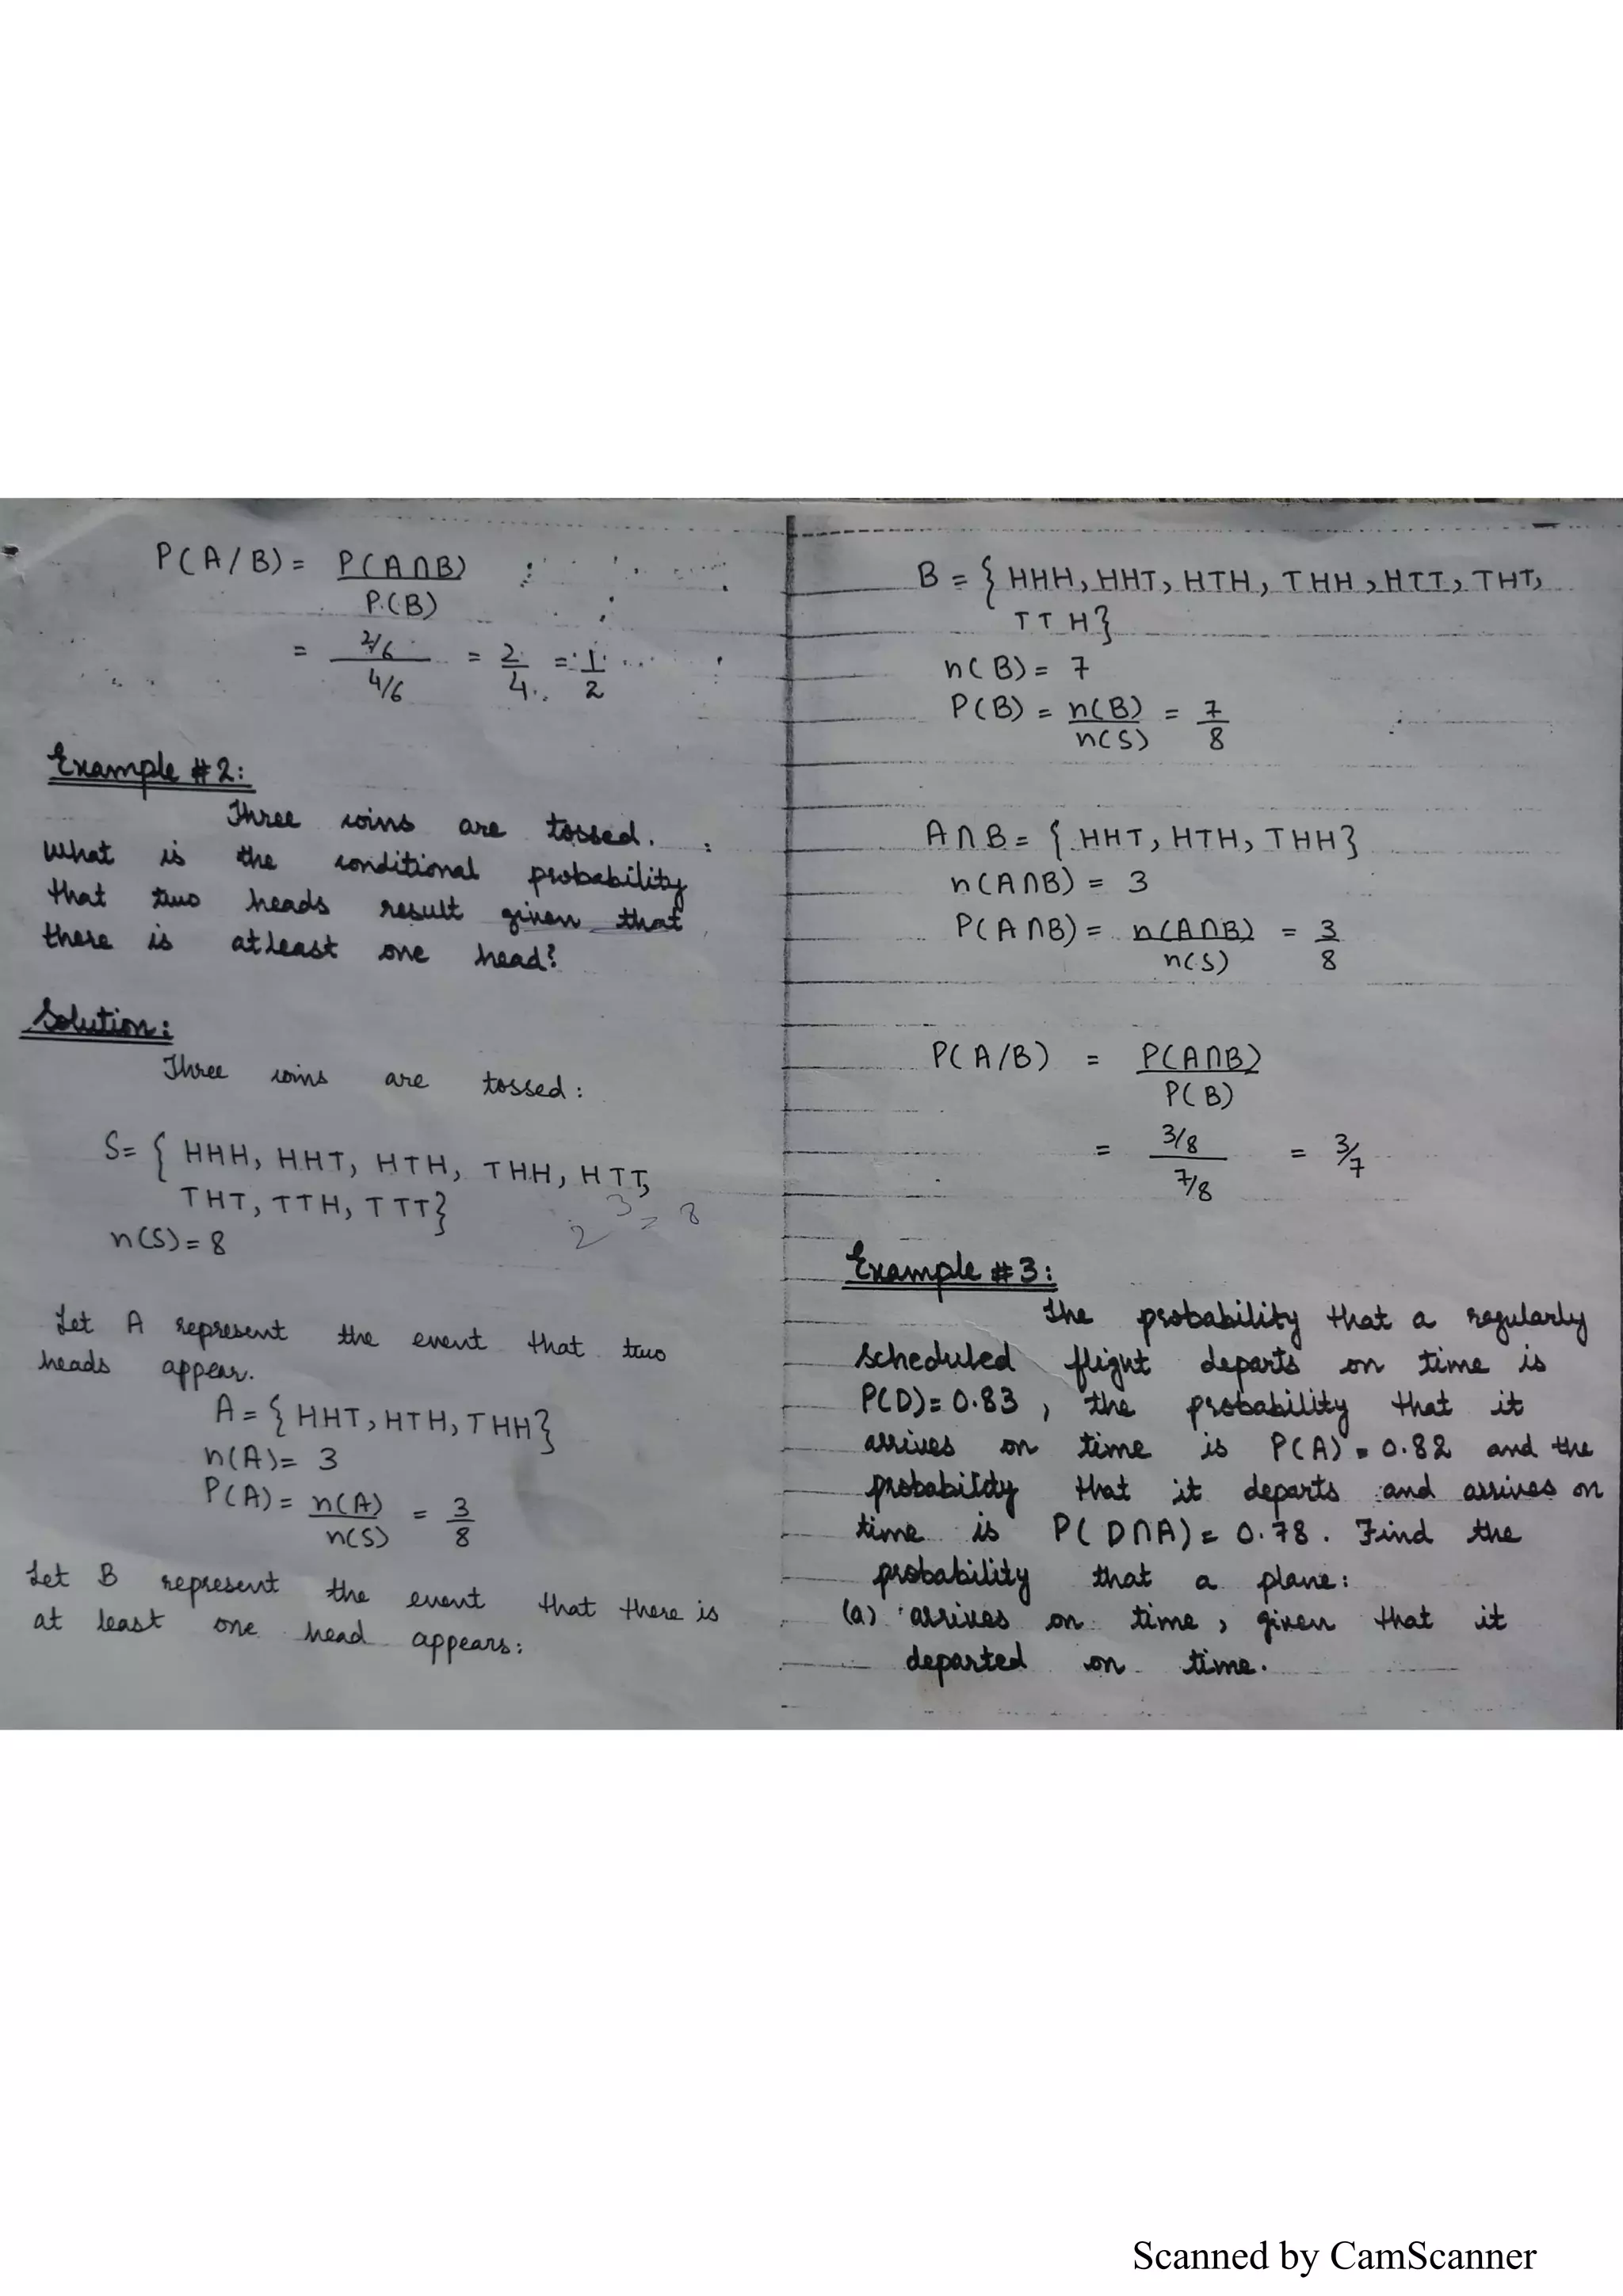 P(A/B) = P(A∩B)
P(B)
= 2/6 = 2 = 1
4/6 4 2
Example #2:
Three coins are tossed.
What is the conditional probability
that two heads result given that
there is atleast one head?
Solution:
Three coins are tossed:
S= { HHH, HHT, HTH, THH, HTT,
THT, TTH, TTT}
2^3 = 8
n(S) = 8
Let A represent the event that two
heads appear.
A = { HHT, HTH, THH}
n(A) = 3
P(A) = n(A) = 3
n(S) 8
Let B represent the event that there is
at least one head appears:
B = { HHH, HHT, HTH, THH, HTT, THT,
TTH}
n(B) = 7
P(B) = n(B) = 7
n(S) 8
A∩B = { HHT, HTH, THH}
n(A∩B) = 3
P(A∩B) = n(A∩B) = 3
n(S) 8
P(A/B) = P(A∩B)
P(B)
= 3/8 = 3/7
7/8
Example #3:
The probability that a regularly
scheduled flight departs on time is
P(D) = 0.83, the probability that it
arrives on time is P(A) = 0.82 and the
probability that it departs and arrives on
time is P(D∩A) = 0.78. Find the
probability that a plane:
(a) arrives on time, given that it
departed on time.
Scanned by CamScanner